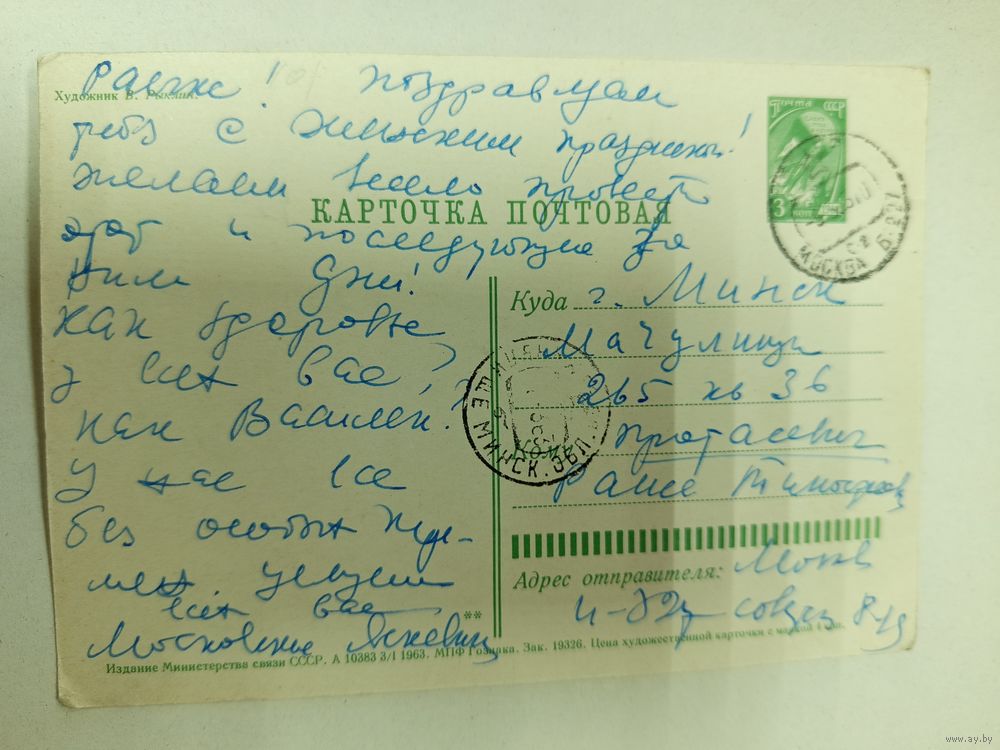 Художник В. Рыклин.
Раиже! Поздравляем
тебя с женским праздником!
желаем весело провести
КАРТОЧКА ПОЧТОВАЯ
этот и последующие за
ним дни!
Как здоровье
у всех вас?
Как Василек?
У нас все
без особых пере-
мен, целуем
всех вас
Московские
ПОЧТА СССР
3 КОП
МОСКВА
Куда г. Минск
Мачулищи
265 кв 36
МИНСК. ОБЛ.
Кому Протасевич
Раисе
Адрес отправителя: Москва
**
Издание Министерства связи СССР. А 10383 3/I 1963. МПФ Гознака. Зак. 19326. Цена художественной карточки с маркой 4 коп.
www.ay.by